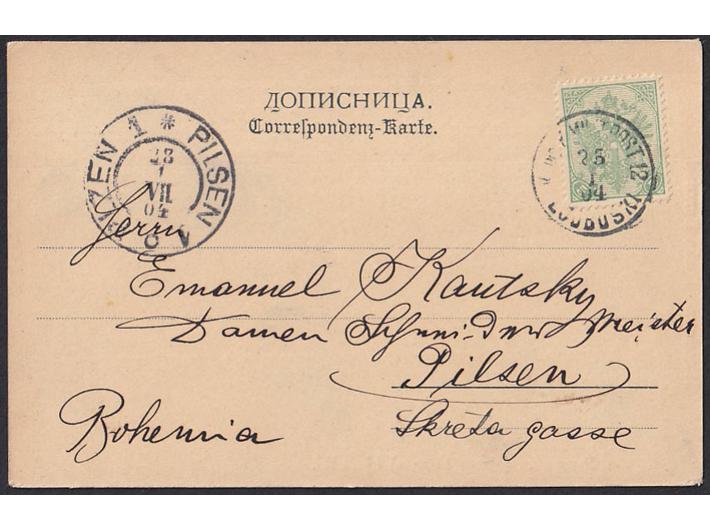 ДОПИСНИЦА.
Correspondenz-Karte.
PLZEN 1 * PILSEN 1
23
VII
04
K. UND K. MILIT. POST 12
25
1
04
LJUBUSKI
Herrn
Emanuel Kautsky
Damen Schneidermeister
Pilsen
Bohemia
Skreta gasse